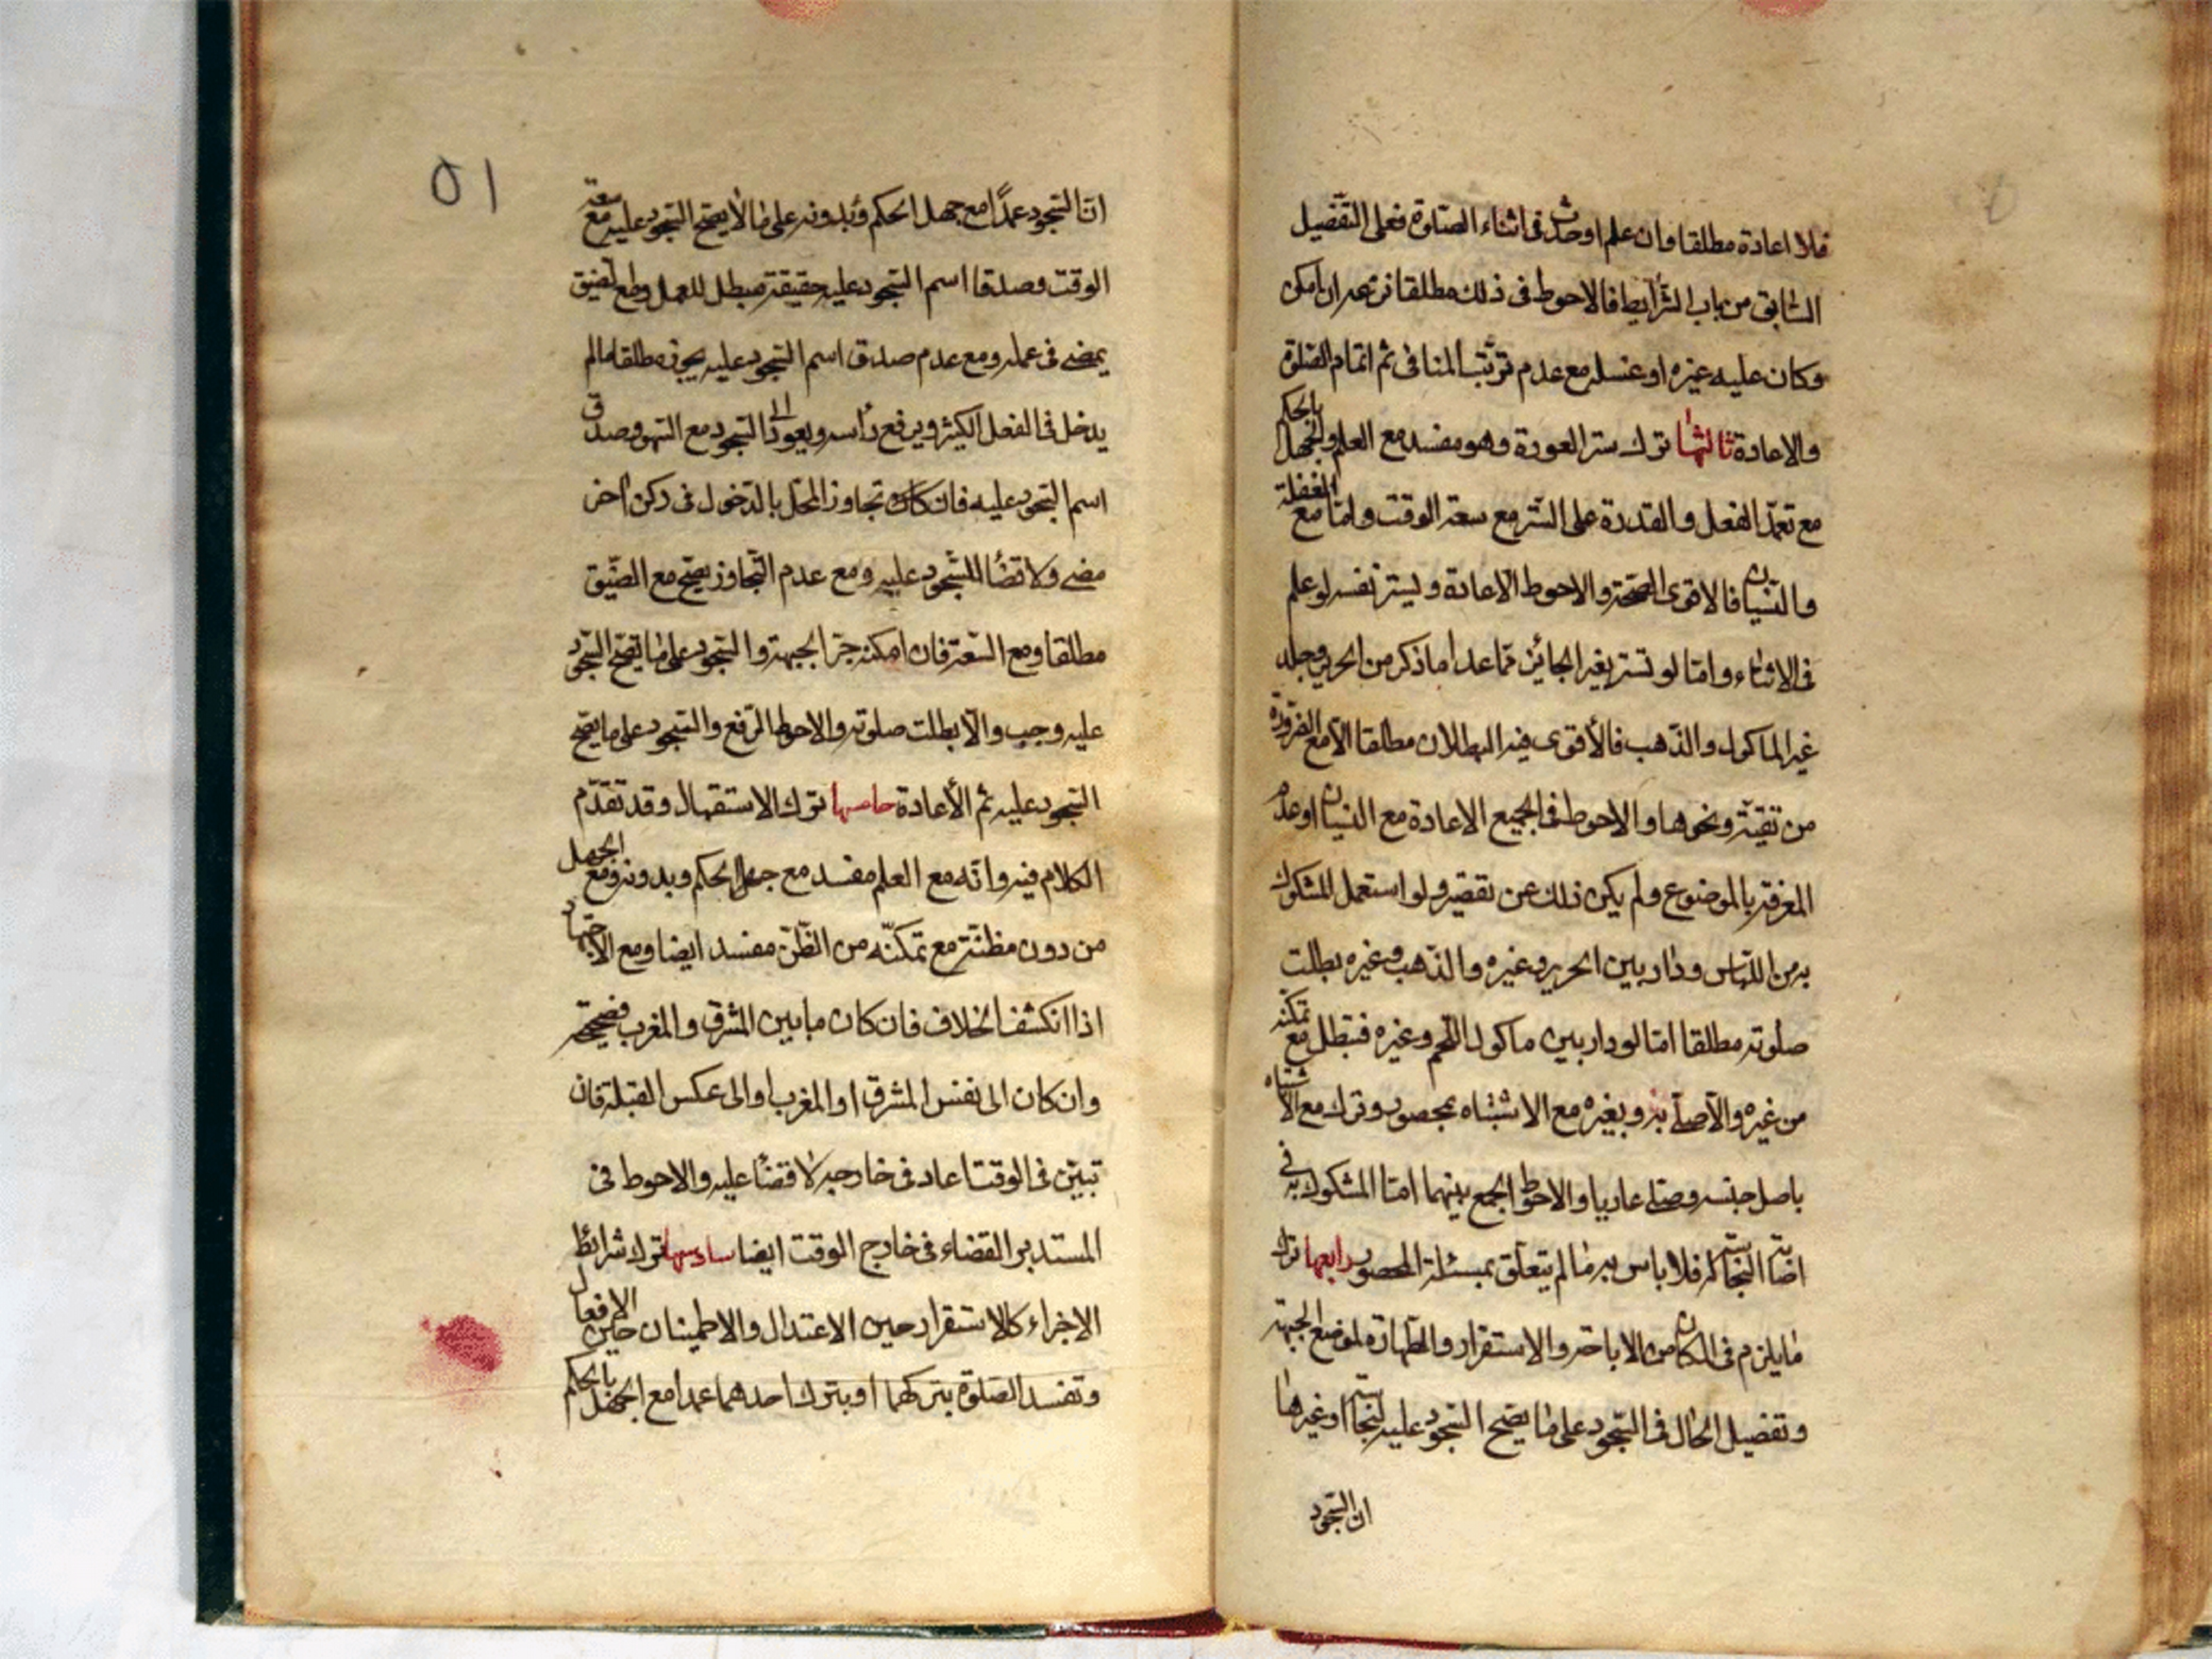 فلا اعادة مطلقا وان علم او حدث فى اثناء الصلوة فعلى التفصيل
السابق من باب الشرايط فالاحوط فى ذلك مطلقا نزعه ان امكن
وكان عليه غيره او غسله مع عدم ترتب المنافى ثم اتمام الصلوة
والاعادة ثالثها ترك ستر العورة وهو مفسد مع العلم والجهل بالحكم
مع تعمد الفعل والقدرة على الستر مع سعة الوقت واما مع الغفلة
والنسيان فالاقوى الصحة والاحوط الاعادة وليستر نفسه لو علم
فى الاثناء واما لو تستر بغير الجائز مما عدا ما ذكر من الحرير وجلد
غير الماكول والذهب فالأقوى فيه البطلان مطلقا الا مع الضرورة
من تقية ونحوها والاحوط فى الجميع الاعادة مع النسيان او عدم
المعرفة بالموضوع ولم يكن ذلك عن تقصير ولو استعمل المشكوك
به من اللباس ودار بين الحرير وغيره والذهب وغيره بطلت
صلوته مطلقا اما لو دار بين ماكول اللحم وغيره فتبطل مع تمكنه
من غيره والا صلى به وبغيره مع الاشتباه بمحصور وترك مع الاشتباه
باصل جنسه وصلى عاريا والاحوط الجمع بينهما اما المشكوك به فى
اصابة النجاسة له فلا باس به ما لم يتعلق بمسئلة المحصور رابعها ترك
ما يلزم فى المكان من الاباحة والاستقرار والطهارة لموضع الجبهة
وتفصيل الحال فى السجود على ما يصح السجود عليه لنجاسة او غيرها
ان السجود
٥١
ان السجود عمدًا مع جهل الحكم وبدونه على ما لا يصح السجود عليه مع سعة
الوقت وصدق اسم السجود عليه حقيقة مبطل للعمل ومع تضيق
يمضى فى عمله ومع عدم صدق اسم السجود عليه يجوز مطلقا ما لم
يدخل فى الفعل الكثير ويرفع رأسه ويعود الى السجود مع السهو وصدق
اسم السجود عليه فان كان تجاوز المحل بالدخول فى ركن اخر
مضى ولا قضاء للسجود عليه ومع عدم التجاوز يصح مع الضيق
مطلقا ومع السعة فان امكنه جر الجبهة والسجود على ما يصح السجود
عليه وجب والا بطلت صلوته والاحوط الرفع والسجود على ما يصح
السجود عليه ثم الأعادة خامسها ترك الاستقبال وقد تقدم
الكلام فيه وانه مع العلم مفسد مع جهل الحكم وبدونه ومع الجهل
من دون مظنة مع تمكنه من الظن مفسد ايضا ومع الاجتهاد
اذا انكشف الخلاف فان كان ما بين المشرق والمغرب فصحيحة
وان كان الى نفس المشرق او المغرب او الى عكس القبلة فان
تبين فى الوقت اعاد وفى خارجه لا قضاء عليه والاحوط فى
المستدبر القضاء فى خارج الوقت ايضا سادسها ترك شرائط
الاجزاء كالاستقرار حين الاعتدال والاطمينان حين الافعال
وتفسد الصلوة بتركهما او بترك احدهما عمدا مع الجهل بالحكم